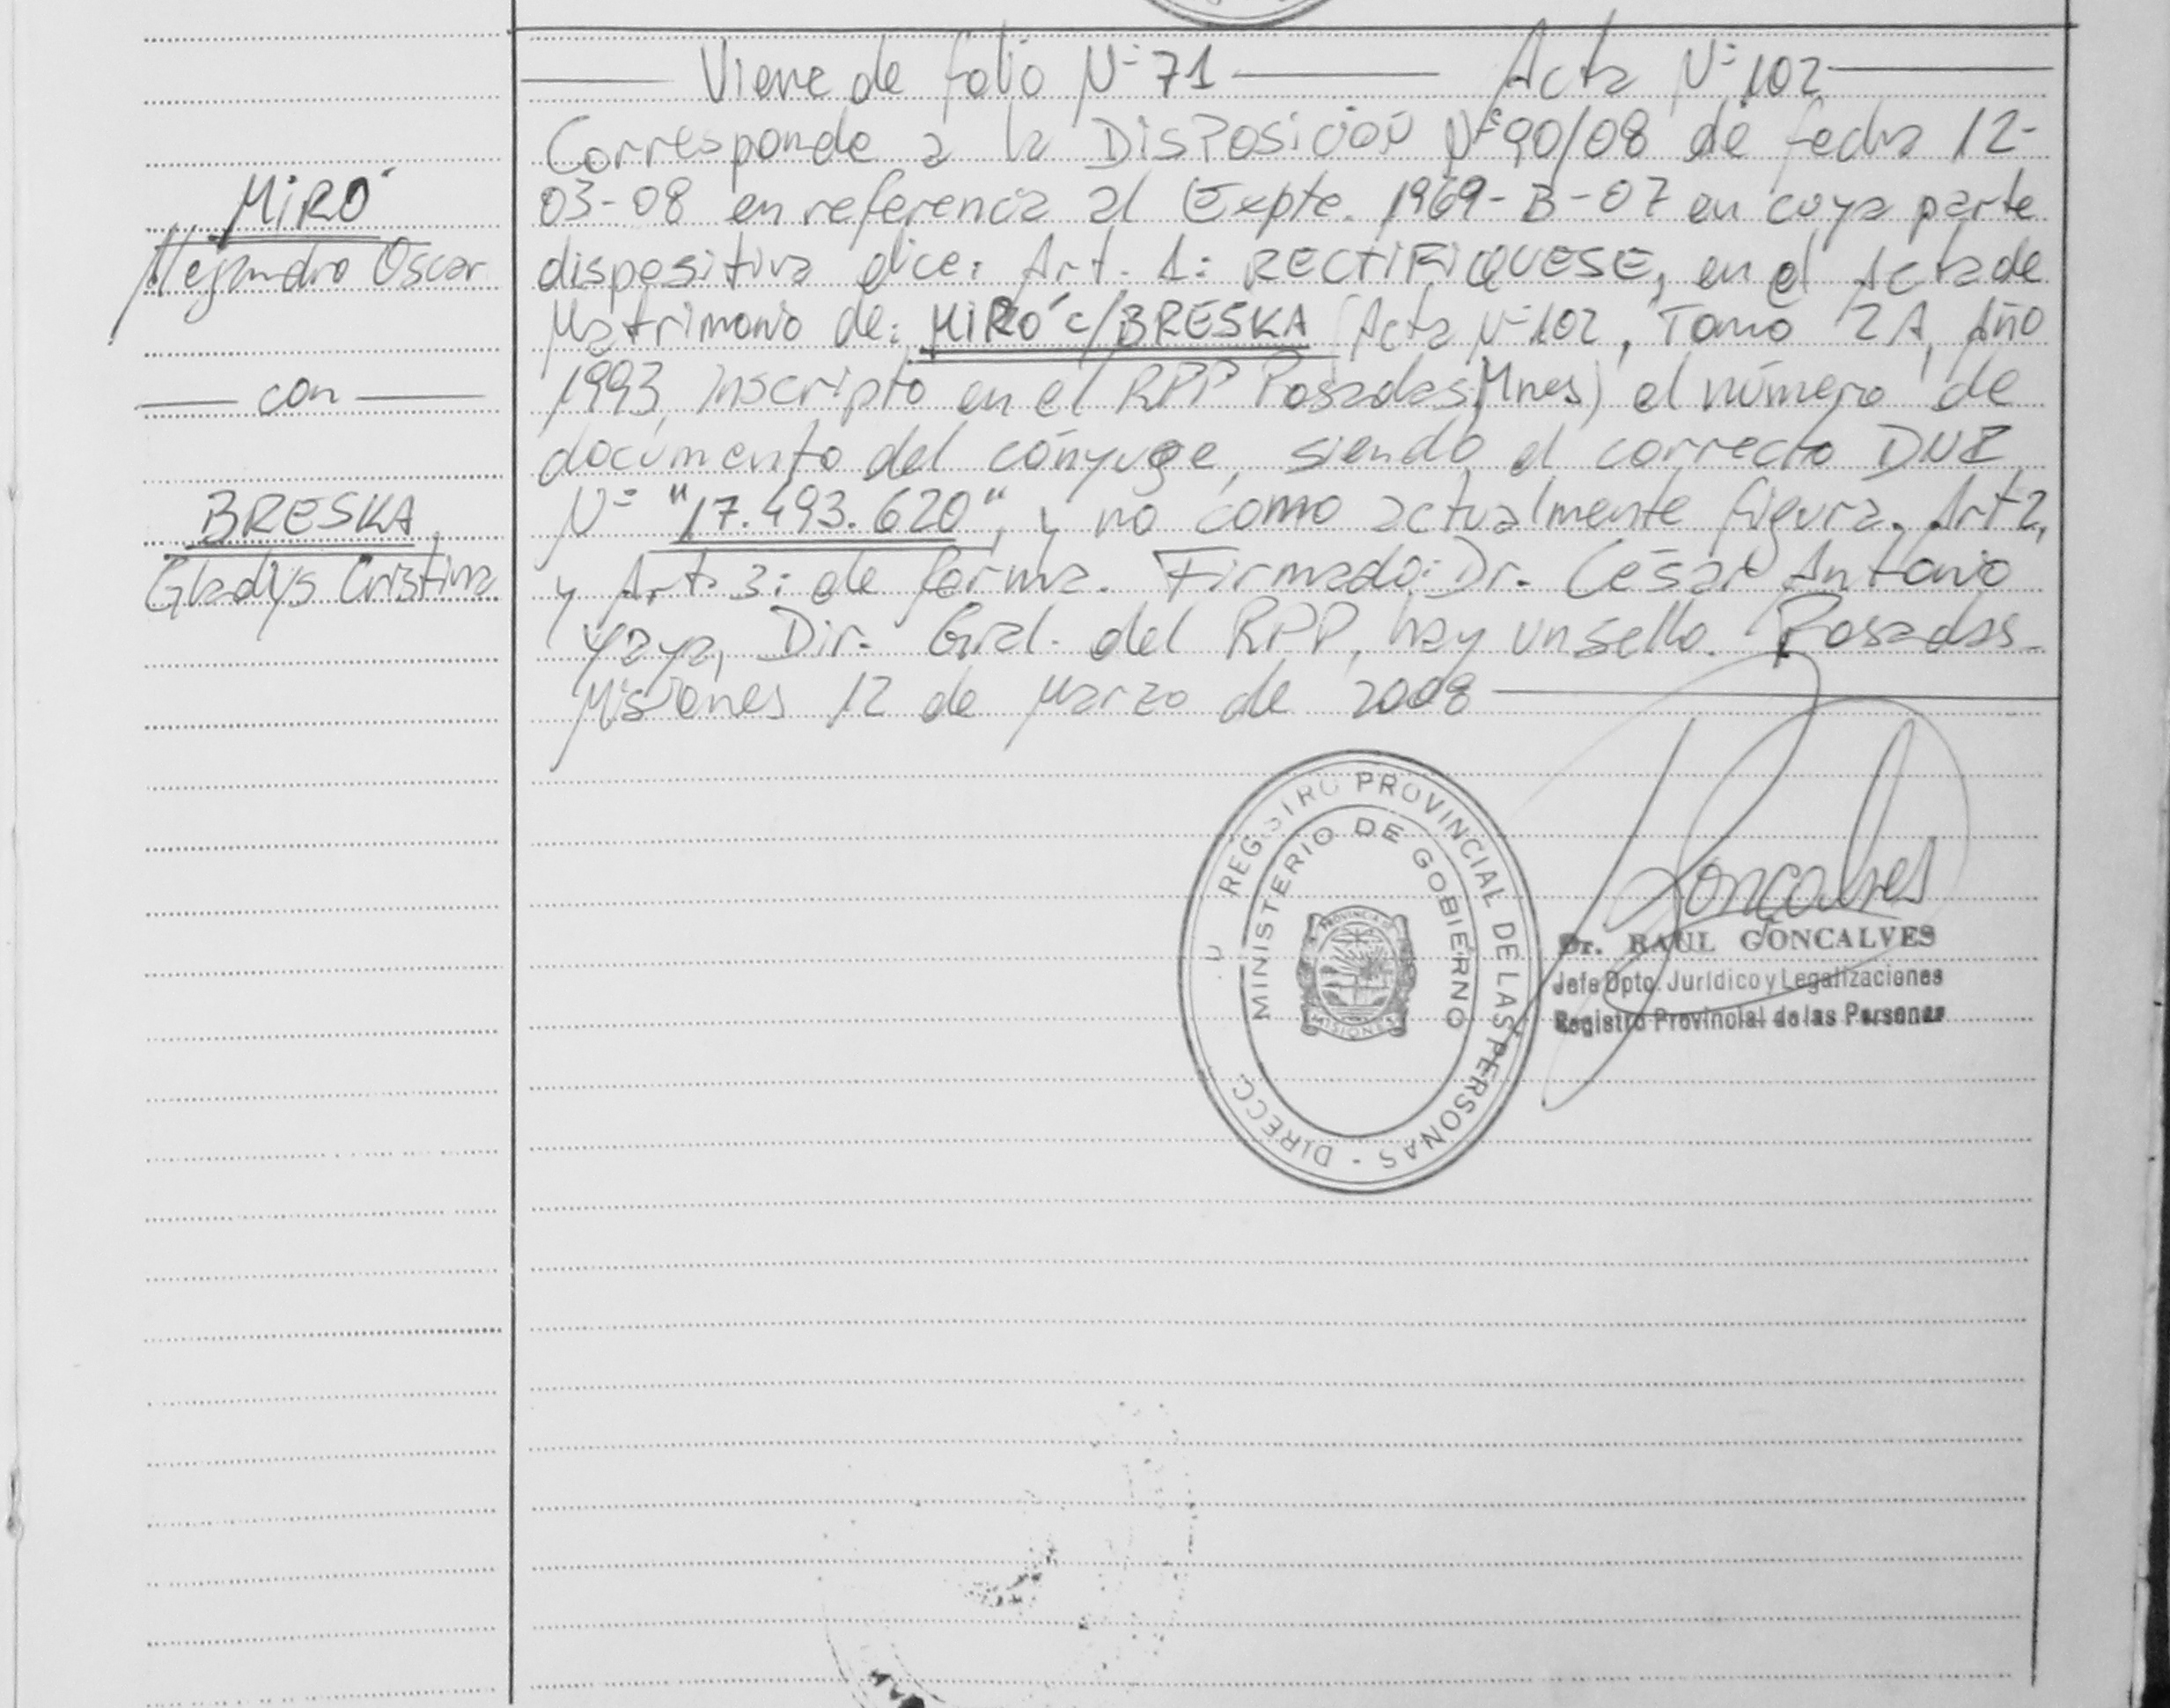 MIRÓ
Alejandro Oscar
con
BRESKA
Gladys Cristina
Viene de folio Nº 71 Acta Nº 102
Corresponde a la DISPOSICIÓN Nº 90/08 de fecha 12-
03-08 en referencia al Expte. 1969-B-07 en cuya parte
dispositiva dice: Art. 1: RECTIFIQUESE, en el Acta de
Matrimonio de: MIRÓ c/BRESKA (Acta Nº 102, Tomo 2A, Año
1993, inscripto en el RPP Posadas, Mnes) el número de
documento del cónyuge, siendo el correcto DNI
Nº "17.493.620", y no como actualmente figura. Art 2,
y Art. 3: de forma. Firmado: Dr. César Antonio
Yaya, Dir. Gral. del RPP, hay un sello. Posadas-
Misiones 12 de Marzo de 2008
REGISTRO PROVINCIAL DE LAS PERSONAS - DIRECC
MINISTERIO DE GOBIERNO
PROVINCIA DE
MISIONES
Gonçalves
Dr. RAUL GONCALVES
Jefe Dpto. Jurídico y Legalizaciones
Registro Provincial de las Personas